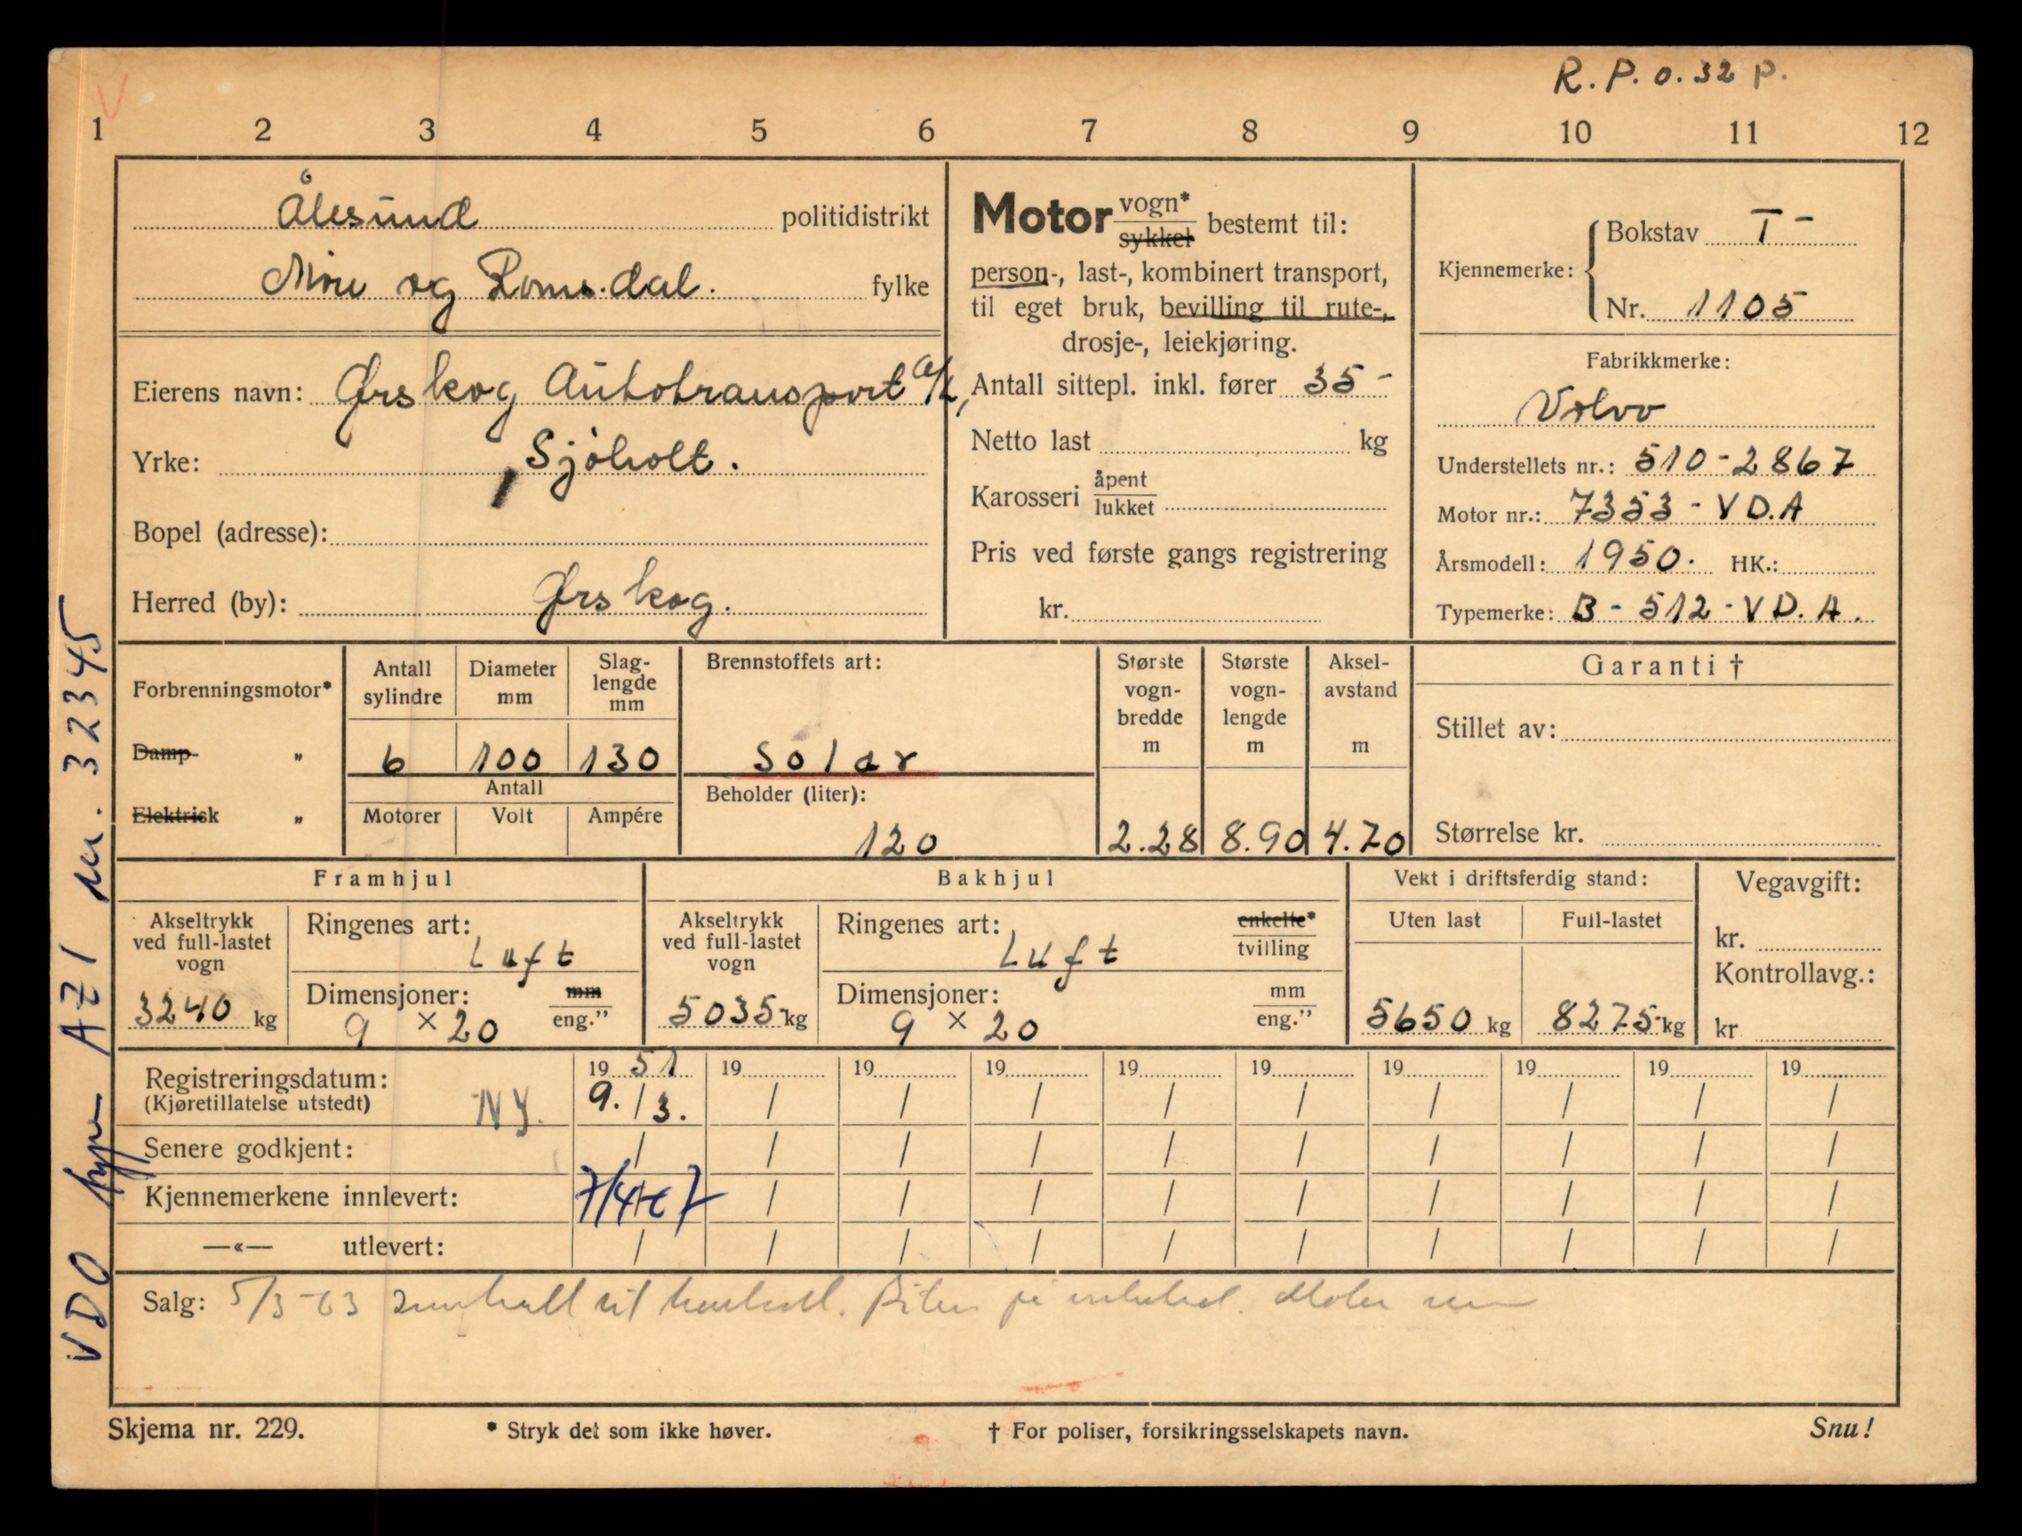 R. P. 0. 32 P.
V
1 2 3 4 5 6 7 8 9 10 11 12
Ålesund politidistrikt
Møre og Romsdal. fylke
Eierens navn: Ørskog Autotransport a/l,
Yrke: Sjøholt.
Bopel (adresse):
Herred (by): Ørskog.
Motor vogn*
sykkel bestemt til:
person-, last-, kombinert transport,
til eget bruk, bevilling til rute-,
drosje-, leiekjøring.
Antall sittepl. inkl. fører 35-
Netto last kg
Karosseri åpent
lukket
Pris ved første gangs registrering
kr.
Kjennemerke: Bokstav T-
Nr. 1105
Fabrikkmerke:
Volvo
Understellets nr.: 510-2867
Motor nr.: 7353 - VD.A
Årsmodell: 1950. HK.:
Typemerke: B - 512 - VD.A.
Forbrenningsmotor*
Damp- „
Elektrisk „
Antall sylindre
Diameter mm
Slag-
lengde
mm
6 100 130
Antall
Motorer Volt Ampére
Brennstoffets art:
Solar
Beholder (liter):
120
Største
vogn-
bredde
m
2.28
Største
vogn-
lengde
m
8.90
Aksel-
avstand
m
4.70
Garanti †
Stillet av:
Størrelse kr.
Framhjul
Akseltrykk
ved full-lastet
vogn
3240 kg
Ringenes art:
Luft
Dimensjoner: mm
9 × 20 eng."
Bakhjul
Akseltrykk
ved full-lastet
vogn
5035 kg
Ringenes art: enkelte*
Luft tvilling
Dimensjoner: mm
9 × 20 eng."
Vekt i driftsferdig stand:
Uten last Full-lastet
5650 kg 8275 kg
Vegavgift:
kr.
Kontrollavg.:
kr
Registreringsdatum: 19 51 19 19 19 19 19 19 19 19 19
(Kjøretillatelse utstedt) NY. 9. / 3. / / / / / / / / /
Senere godkjent: / / / / / / / / / /
Kjennemerkene innlevert: 7/4-67 / / / / / / / / /
—«— utlevert: / / / / / / / / / /
Salg: 5/3-63 til
Skjema nr. 229.
* Stryk det som ikke høver.
† For poliser, forsikringsselskapets navn.
Snu!
VDO type AZ1 nr. 32345